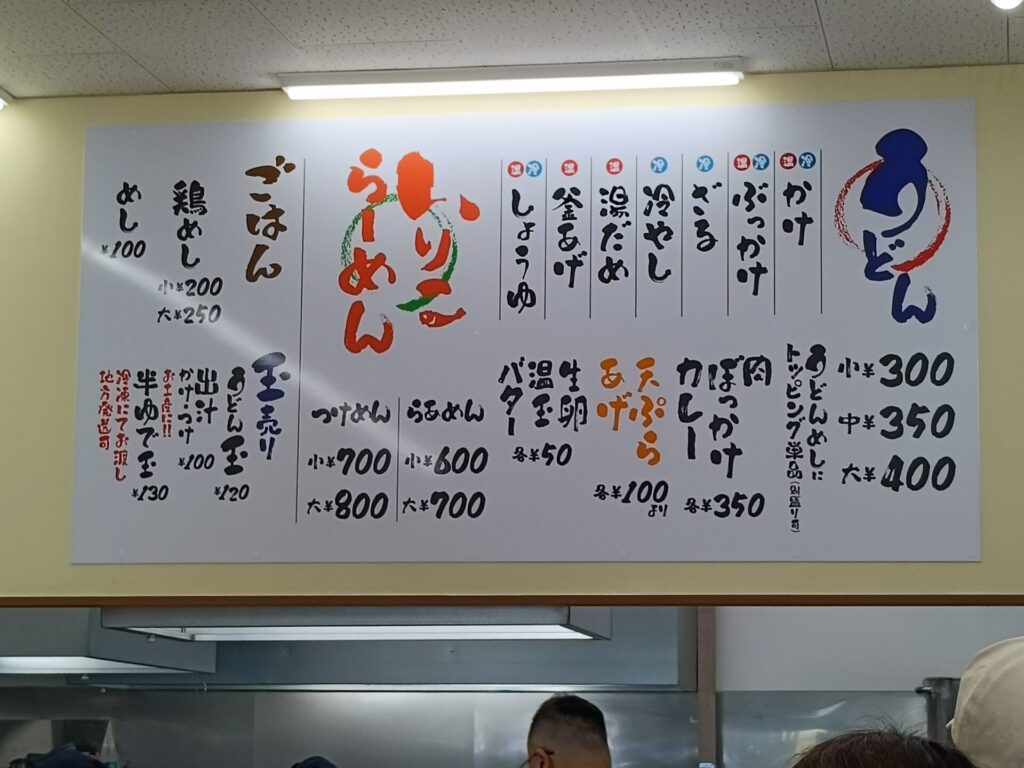 うどん
温冷 かけ
温冷 ぶっかけ
冷 ざる
冷 冷やし
温 湯だめ
温 釜あげ
温冷 しょうゆ
小¥300
中¥350
大¥400
うどんめしに
トッピング単品(別盛り可)
肉
ぼっかけ
カレー
各¥350
天ぷら
あげ
各¥100より
生卵
温玉
バター
各¥50
いりこ
らーめん
らあめん
小¥600
大¥700
つけめん
小¥700
大¥800
ごはん
鶏めし
小¥200
大¥250
めし
¥100
玉売り
うどん玉
¥120
出汁
かけ・つけ
¥100
お土産に!!
半ゆで玉
¥130
冷凍にてお渡し
地方発送可